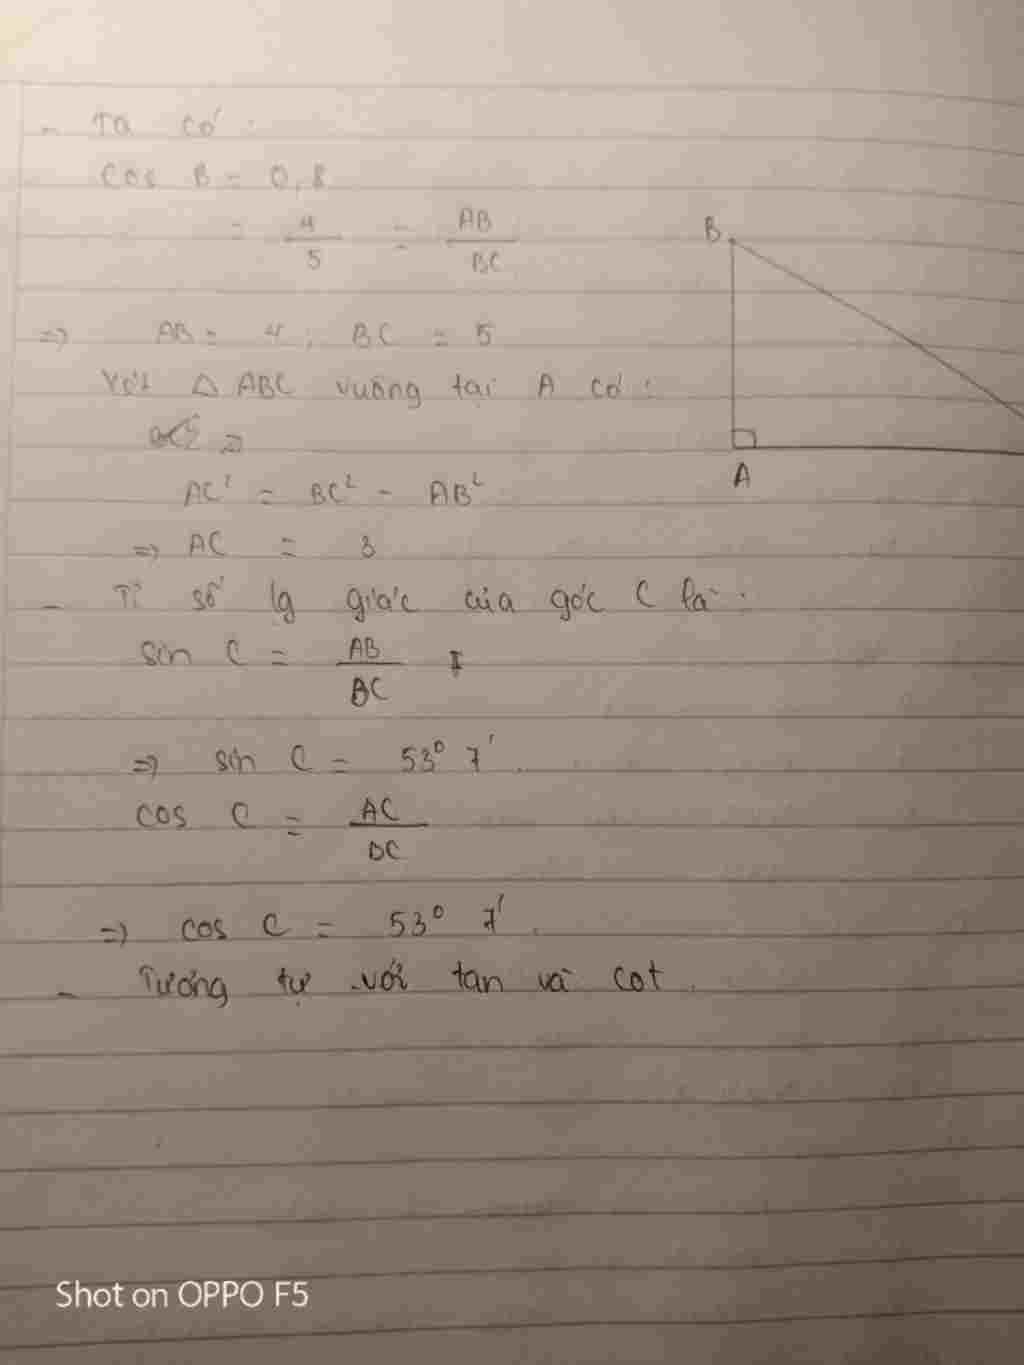 - Ta có:
cos B = 0,8
= 4/5 = AB/BC
=> AB = 4; BC = 5
Với △ ABC vuông tại A có:
AC² = BC² - AB²
=> AC = 3
- Tỉ số lg giác của góc C là:
sin C = AB/BC
=> sin C = 53° 7'.
cos C = AC/BC
=> cos C = 53° 7'.
- Tương tự với tan và cot.
B
A
Shot on OPPO F5